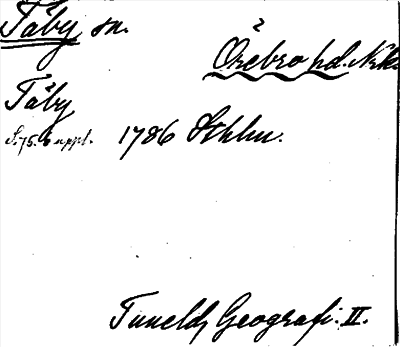 Täby sn.
Örebro hd. Nrke.
Täby
S. 75. 6 uppl. 1786 Sthlm.
Tunelds Geografi. II.